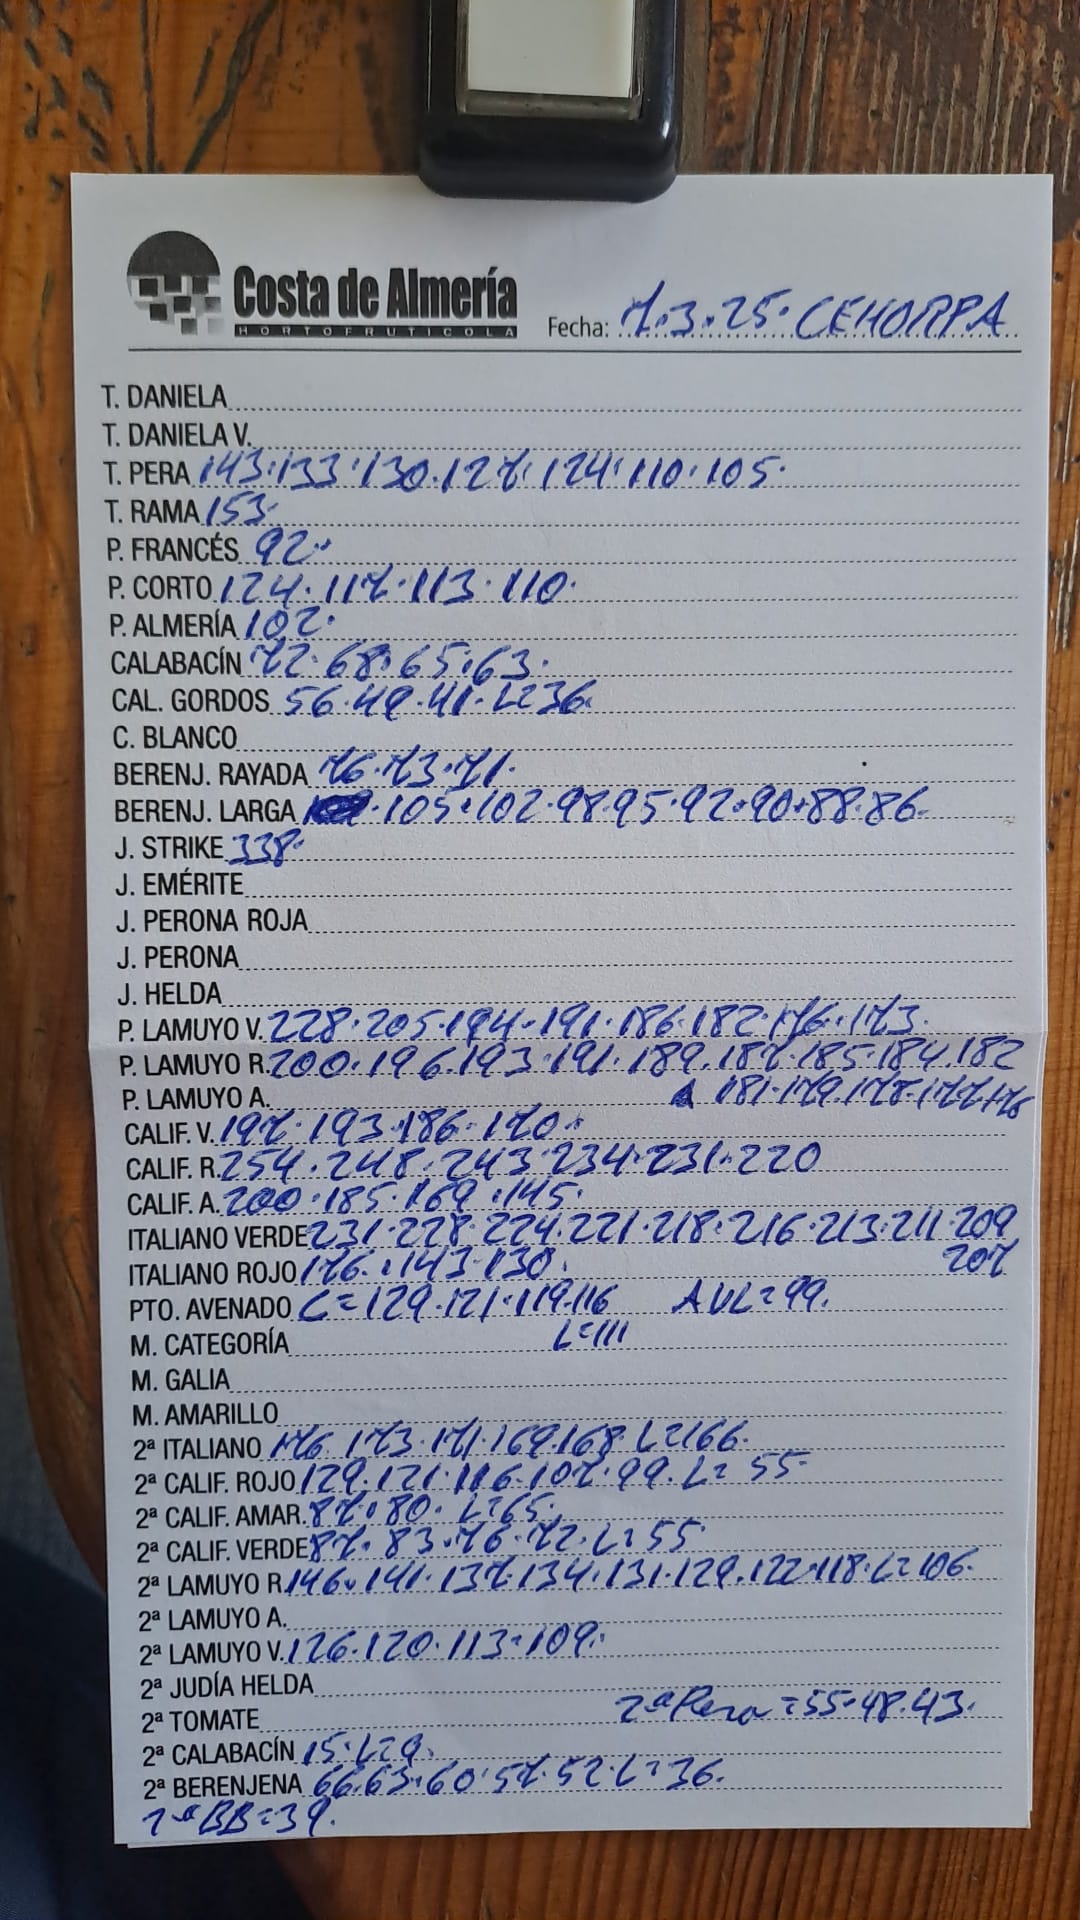 Costa de Almería
HORTOFRUTICOLA
Fecha: 7.3.25. CEHORPA
T. DANIELA
T. DANIELA V.
T. PERA 143.133.130.127.124.110.105.
T. RAMA 153.
P. FRANCÉS 92.
P. CORTO 124.117.113.110.
P. ALMERÍA 102.
CALABACÍN 72.68.65.63.
CAL. GORDOS 56.49.41.L=36.
C. BLANCO
BERENJ. RAYADA 76.73.71.
BERENJ. LARGA .105.102.98.95.92.90.88.86.
J. STRIKE 338.
J. EMÉRITE
J. PERONA ROJA
J. PERONA
J. HELDA
P. LAMUYO V. 228.205.194.191.186.182.176.173.
P. LAMUYO R. 200.196.193.191.189.187.185.184.182
P. LAMUYO A. 181.179.178.177.176
CALIF. V. 197.193.186.170.
CALIF. R. 254.248.243.234.231.220
CALIF. A. 200.185.169.145.
ITALIANO VERDE 231.228.224.221.218.216.213.211.209
207
ITALIANO ROJO 176.143.130.
PTO. AVENADO C=129.121.119.116 AVL=99.
L=111
M. CATEGORÍA
M. GALIA
M. AMARILLO
2ª ITALIANO 176.173.171.169.168.L=166.
2ª CALIF. ROJO 129.121.116.107.99.L=55.
2ª CALIF. AMAR. 87.80.L=65.
2ª CALIF. VERDE 87.83.76.72.L=55
2ª LAMUYO R. 146.141.137.134.131.129.122.118.L=106.
2ª LAMUYO A.
2ª LAMUYO V. 126.120.113.109.
2ª JUDÍA HELDA
2ª Pera=55.48.43.
2ª TOMATE
2ª CALABACÍN 15.L=9.
2ª BERENJENA 66.63.60.57.52.L=36.
2ª BB=39.